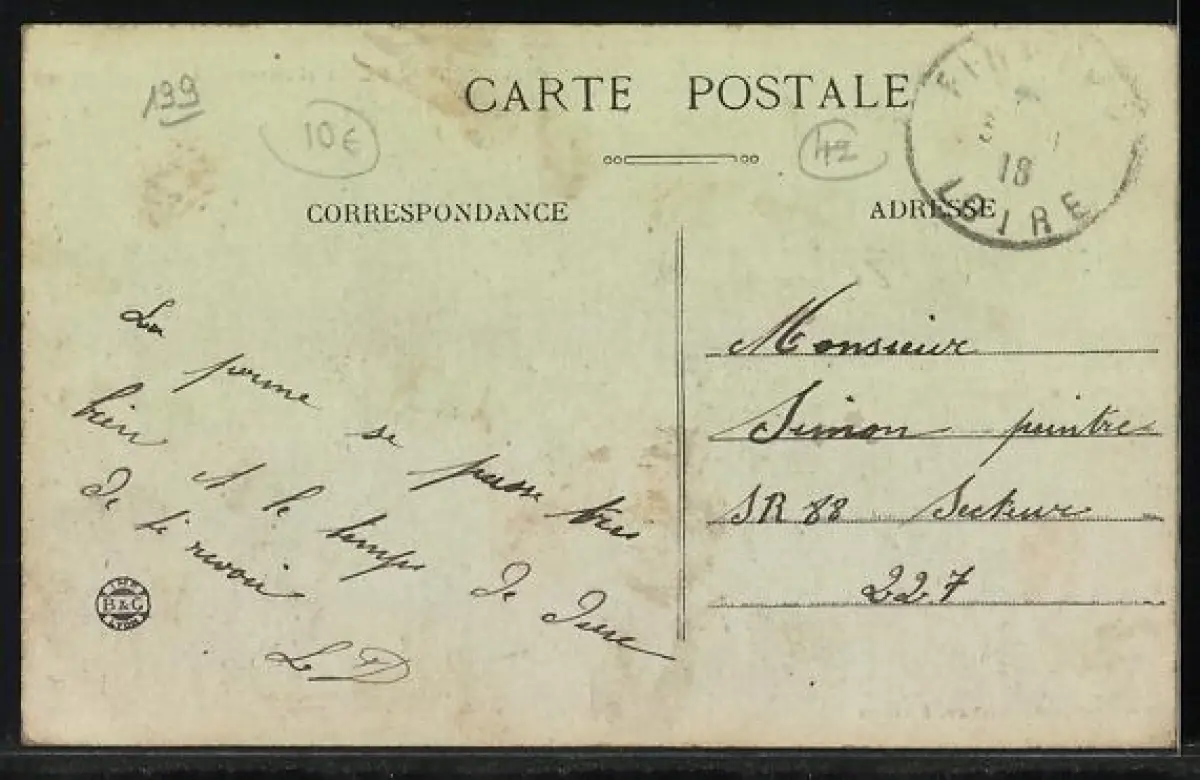 199
10€
CARTE POSTALE
42
18
LOIRE
CORRESPONDANCE
ADRESSE
La
se
bien et le temps
très
de te revoir
Monsieur
Simon peintre
SR 88 Secteur
227
IMP.
B&G
LYON